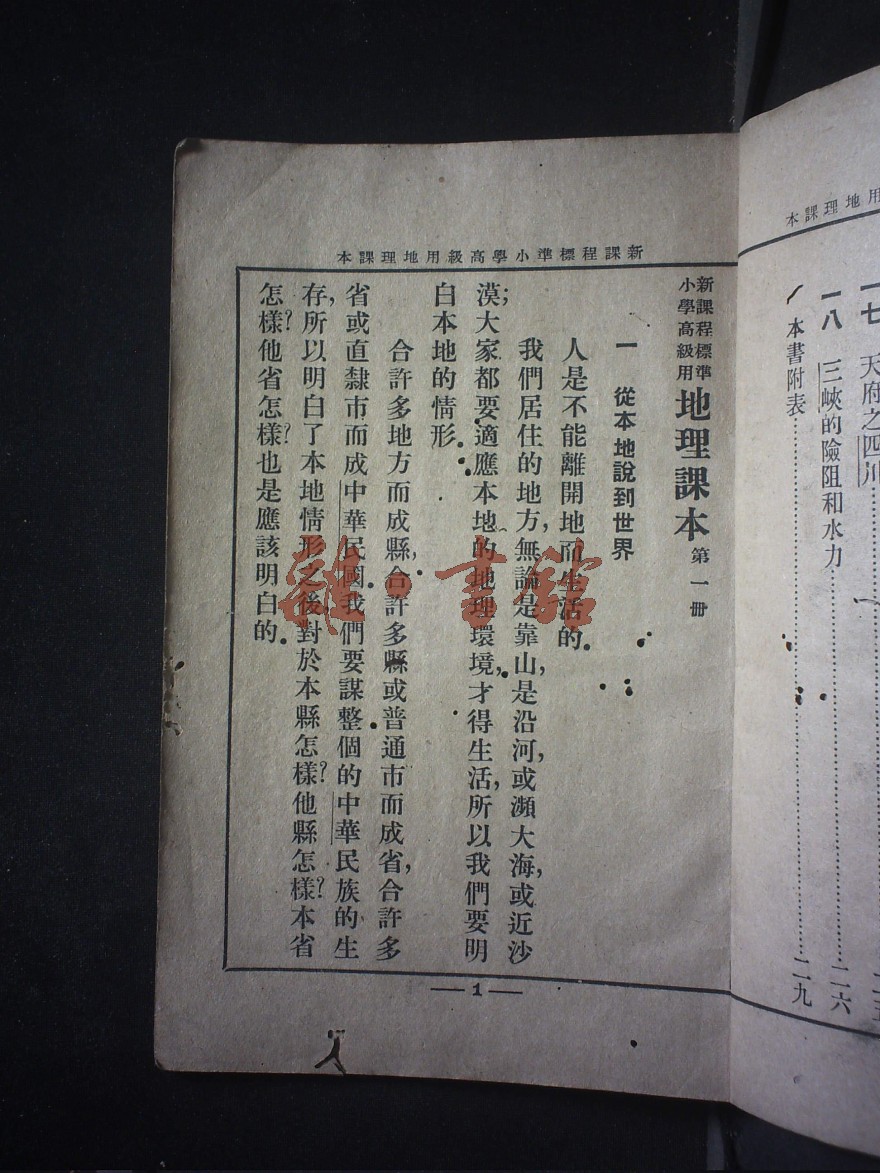 用地理課本
一七 天府之四川
一八 三峽的險阻和水力……二六
本書附表……二九
新課程標準小學高級用地理課本
新課程標準
小學高級用
地理課本 第一册
一 從本地說到世界
人是不能離開地而生活的。
我們居住的地方,無論是靠山,是沿河,或瀕大海,或近沙
漠;大家都要適應本地的地理環境,才得生活,所以我們要明
白本地的情形。
合許多地方而成縣,合許多縣或普通市而成省,合許多
省或直隸市而成中華民國。我們要謀整個的中華民族的生
存,所以明白了本地情形之後,對於本縣怎樣?他縣怎樣?本省
怎樣?他省怎樣?也是應該明白的。
— 1 —
雜·書館